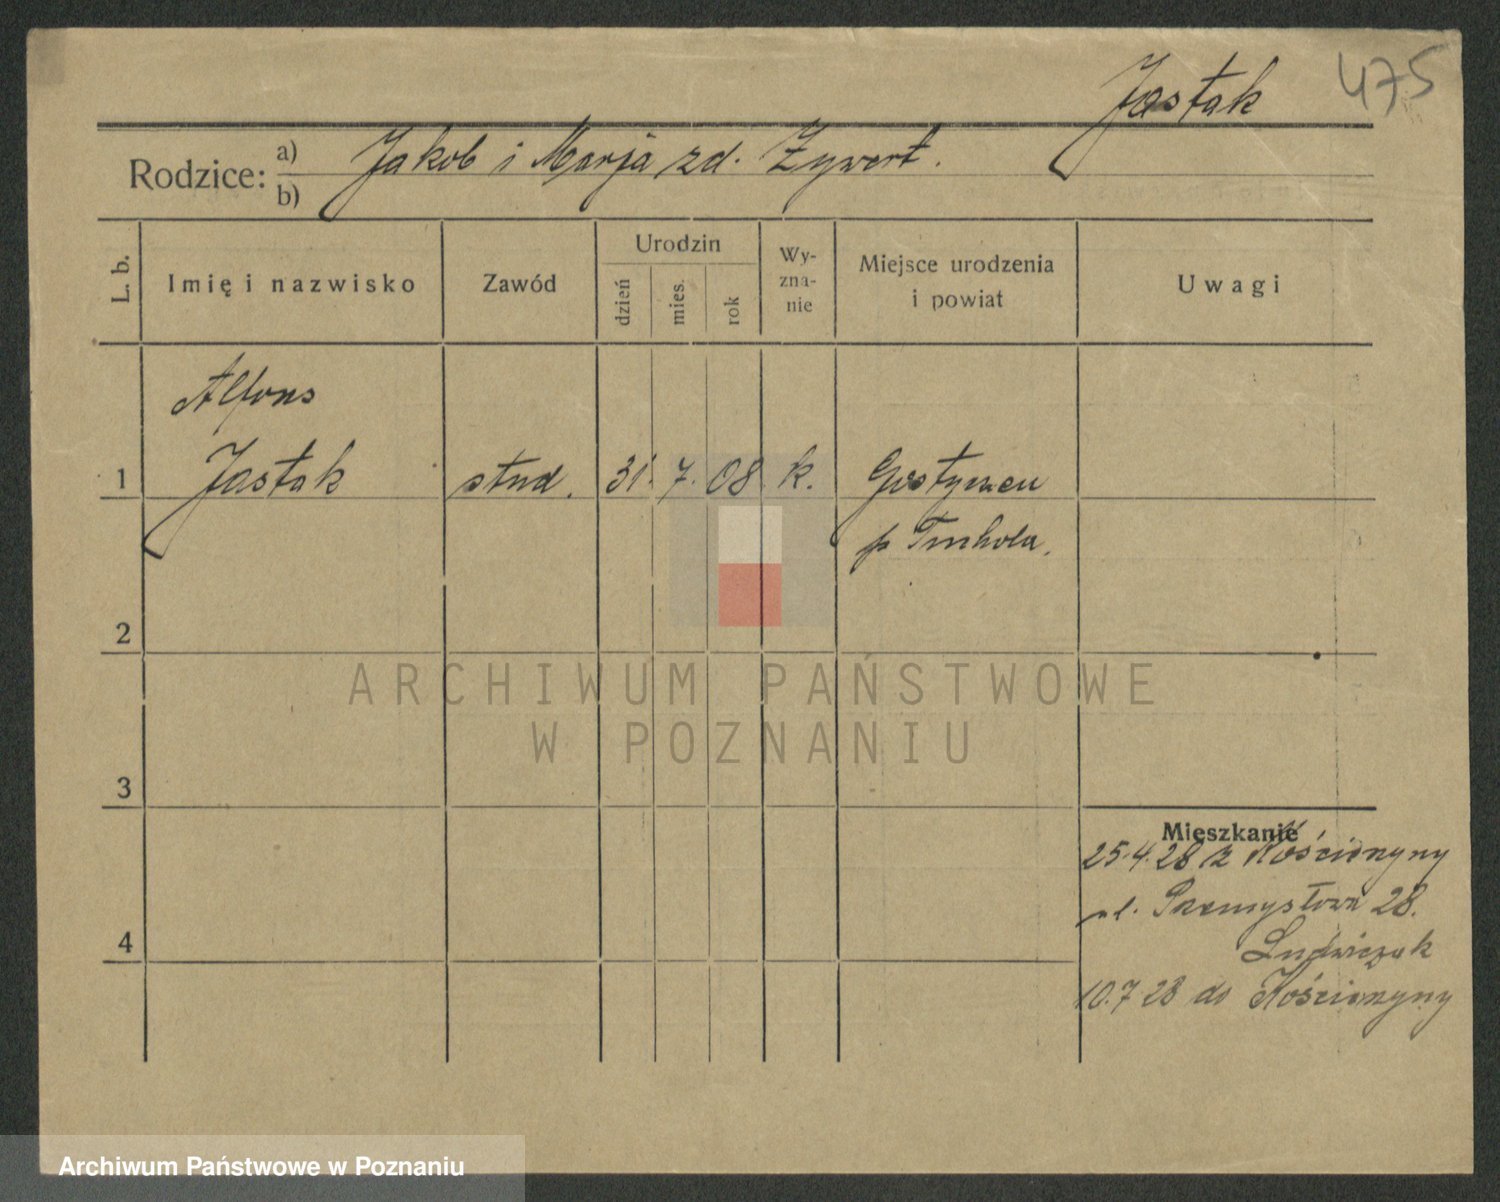 475
Jastak
Rodzice: a) b)
Jakob i Marja zd. Żywert.
L. b.
Imię i nazwisko
Zawód
Urodzin
dzień
mies.
rok
Wy-
zna-
nie
Miejsce urodzenia
i powiat
Uwagi
Alfons
1 Jastak stud. 31. 7. 08 k. Gostyczeu
p Tuchola.
2
ARCHIWUM PAŃSTWOWE
W POZNANIU
3
Mieszkanie
25.4.28 z Kościerzyny
ul. Przemysłowa 28.
Ludwiczak
4
10.7 28 do Kościerzyny
Archiwum Państwowe w Poznaniu